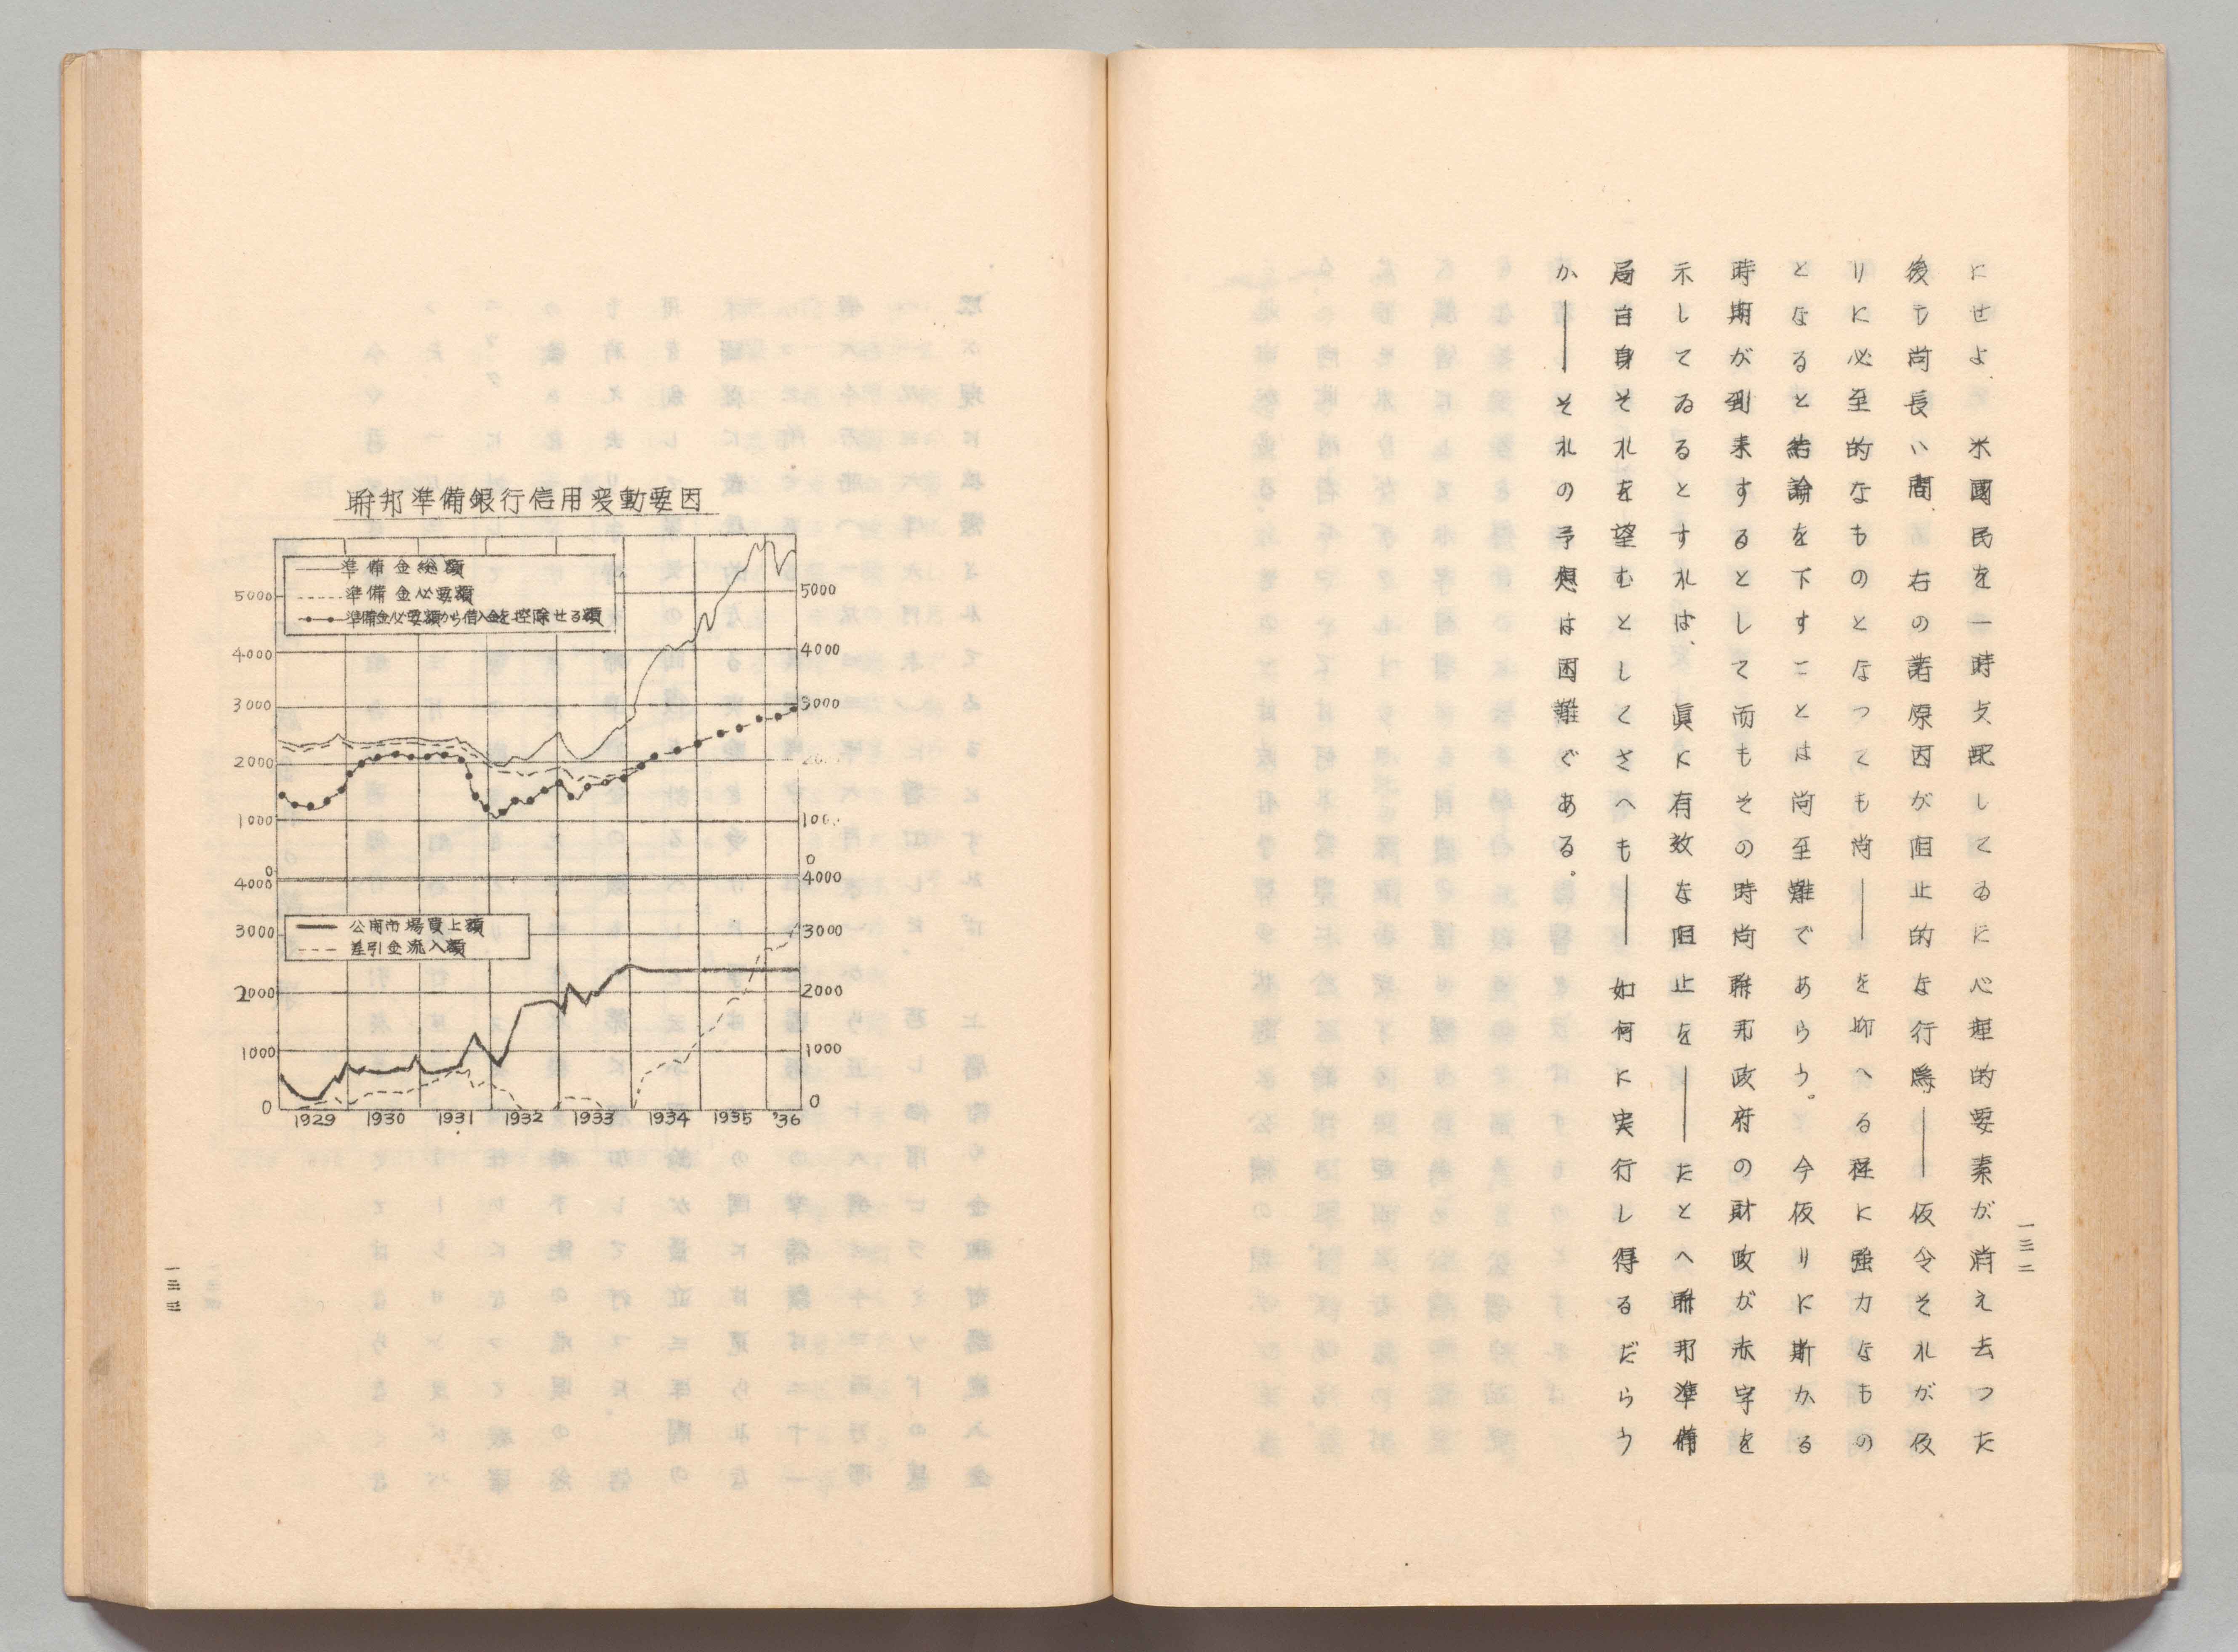 にせよ、米國民を一時支配してゐに心理的要素が消え去つた
後も尚長い間、右の諸原因が阻止的な行爲――仮令それが仮
りに必至的なものとなつても尚――を抑へる程に強力なもの
となると結論を下すことは尚至難であらう。今仮りに斯かる
時期が到来するとして而もその時尚聯邦政府の財政が赤字を
示してゐるとすれば、眞に有效な阻止を――たとへ聯邦準備
局自身それを望むとしてさへも――如何に実行し得るだらう
か――それの予想は困難である。
一三二
聯邦準備銀行信用変動要因
準備金総額
準備金必要額
準備金必要額から借入金を控除せる額
5000
4000
3000
2000
1000
0
5000
4000
3000
0
公開市場買上額
差引金流入額
4000
3000
2000
1000
0
4000
3000
2000
1000
0
1929 1930 1931 1932 1933 1934 1935 '36
一三三